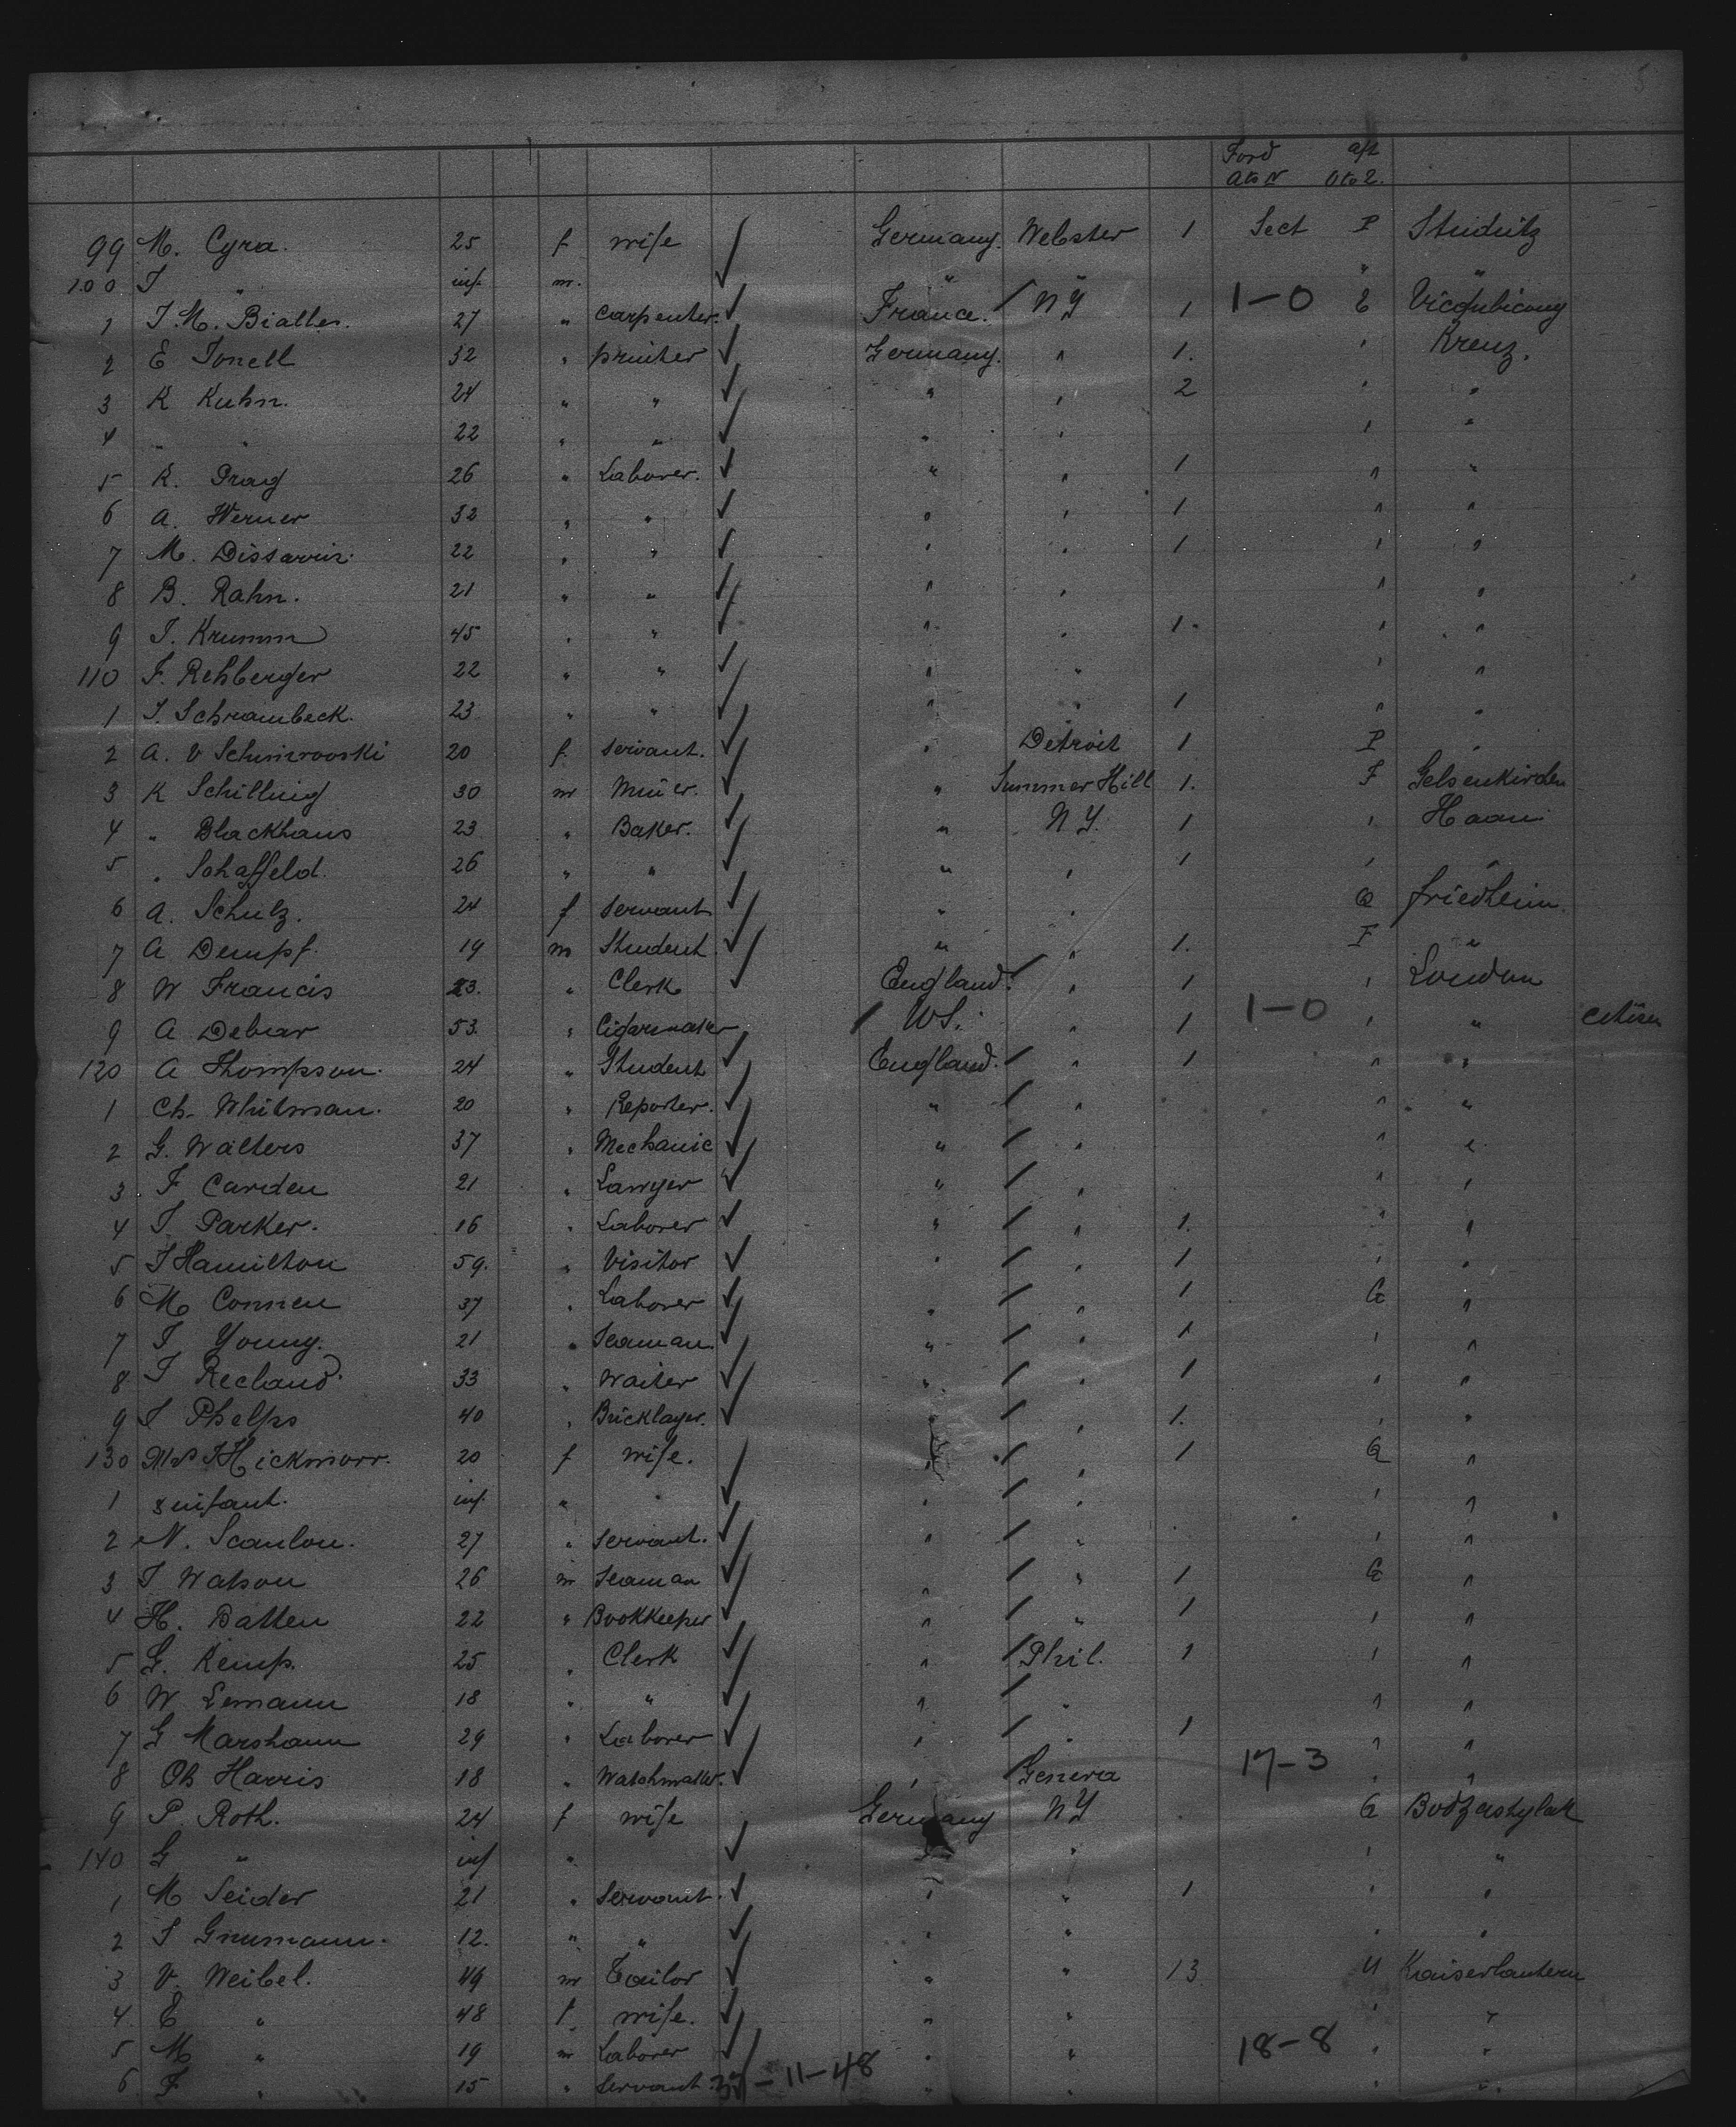 Ford aft
A to N O to Z.
99 M. Cyra. 25 f wife Germany. Webster 1 Sect P
100 J " inf. m. " " " "
1 J. M. Bialles. 27 " carpenter. France. N Y 1 1-0 E
2 E Tonell 32 " printer Germany. " 1. " Kreuz.
3 K Kuhn. 24 " " " " 2 " "
4 " " 22 " " " " " "
5 K. Prag 26 " Laborer. " " 1 " "
6 A. Werner 32 " " " " 1 " "
7 M. 22 " " " " 1 " "
8 B. Rahn. 21 " " " " " "
9 J. Krumm 45 " " " " 1. " "
110 F. Rehberger 22 " " " " " "
1 J. Schrambeck. 23 " " " " 1 " "
2 A. v 20 f servant. " Detroit 1 P "
3 K Schilling 30 m Miner. " Summer Hill 1. F Gelsenkirchen
4 " Blackhaus 23 " Baker. " N Y. 1 " Haan
5 " Schaffeld. 26 " " " " 1 " "
6 A. Schulz. 24 f servant " " Q Friedheim.
7 A Dempf. 19 m Student. " " 1. F "
8 W Francis 23. " Clerk England. " 1 " London
9 A Debear 53. " Cigarmaker US. " 1 1-0 " " citizen
120 A Thompson. 24 " Student England. " 1 " "
1 Ch. Whitman. 20 " Reporter. " " " "
2 G. Walters 37 " Mechanic " " " "
3 F Carden 21 " Lawyer " " " "
4 J Parker. 16 " Laborer " " 1. " "
5 J Hamilton 59. " Visitor " " 1 " "
6 M Connen 37 " Laborer " " 1 G "
7 J Young. 21 " Seaman. " " 1 " "
8 J Recland. 33 " Waiter " " 1 " "
9 J Phelps 40 " Bricklayer. " " 1. " "
130 Mrs J Hickmorr. 20 f wife. " " 1 G "
1 infant. inf. " " " " " "
2 N. Scanlon. 27 " servant. " " " "
3 J Watson 26 m Seaman " " 1 G "
4 H. Batten 22 " Bookkeeper " " 1 " "
5 G. Kemp. 25 " Clerk " Phil. 1 " "
6 W Lemann 18 " " " " " "
7 G Marshann 29 " Laborer " " 1 " "
8 Ch Harris 18 " Watchmaker. " Geneva 17-3 " "
9 P. Roth. 24 f wife Germany N Y G
140 G " inf " " " "
1 M Seider 21 " Servant. " " 1 " "
2 S 12. " " " " " "
3 V. Weibel. 49 m Tailor " " 13. U Kaiserlautern
4 E " 48 f. wife. " " " "
5 M " 19 m Laborer " " 18-8 " "
6 F " 15 " servant. -11-48 " " " "